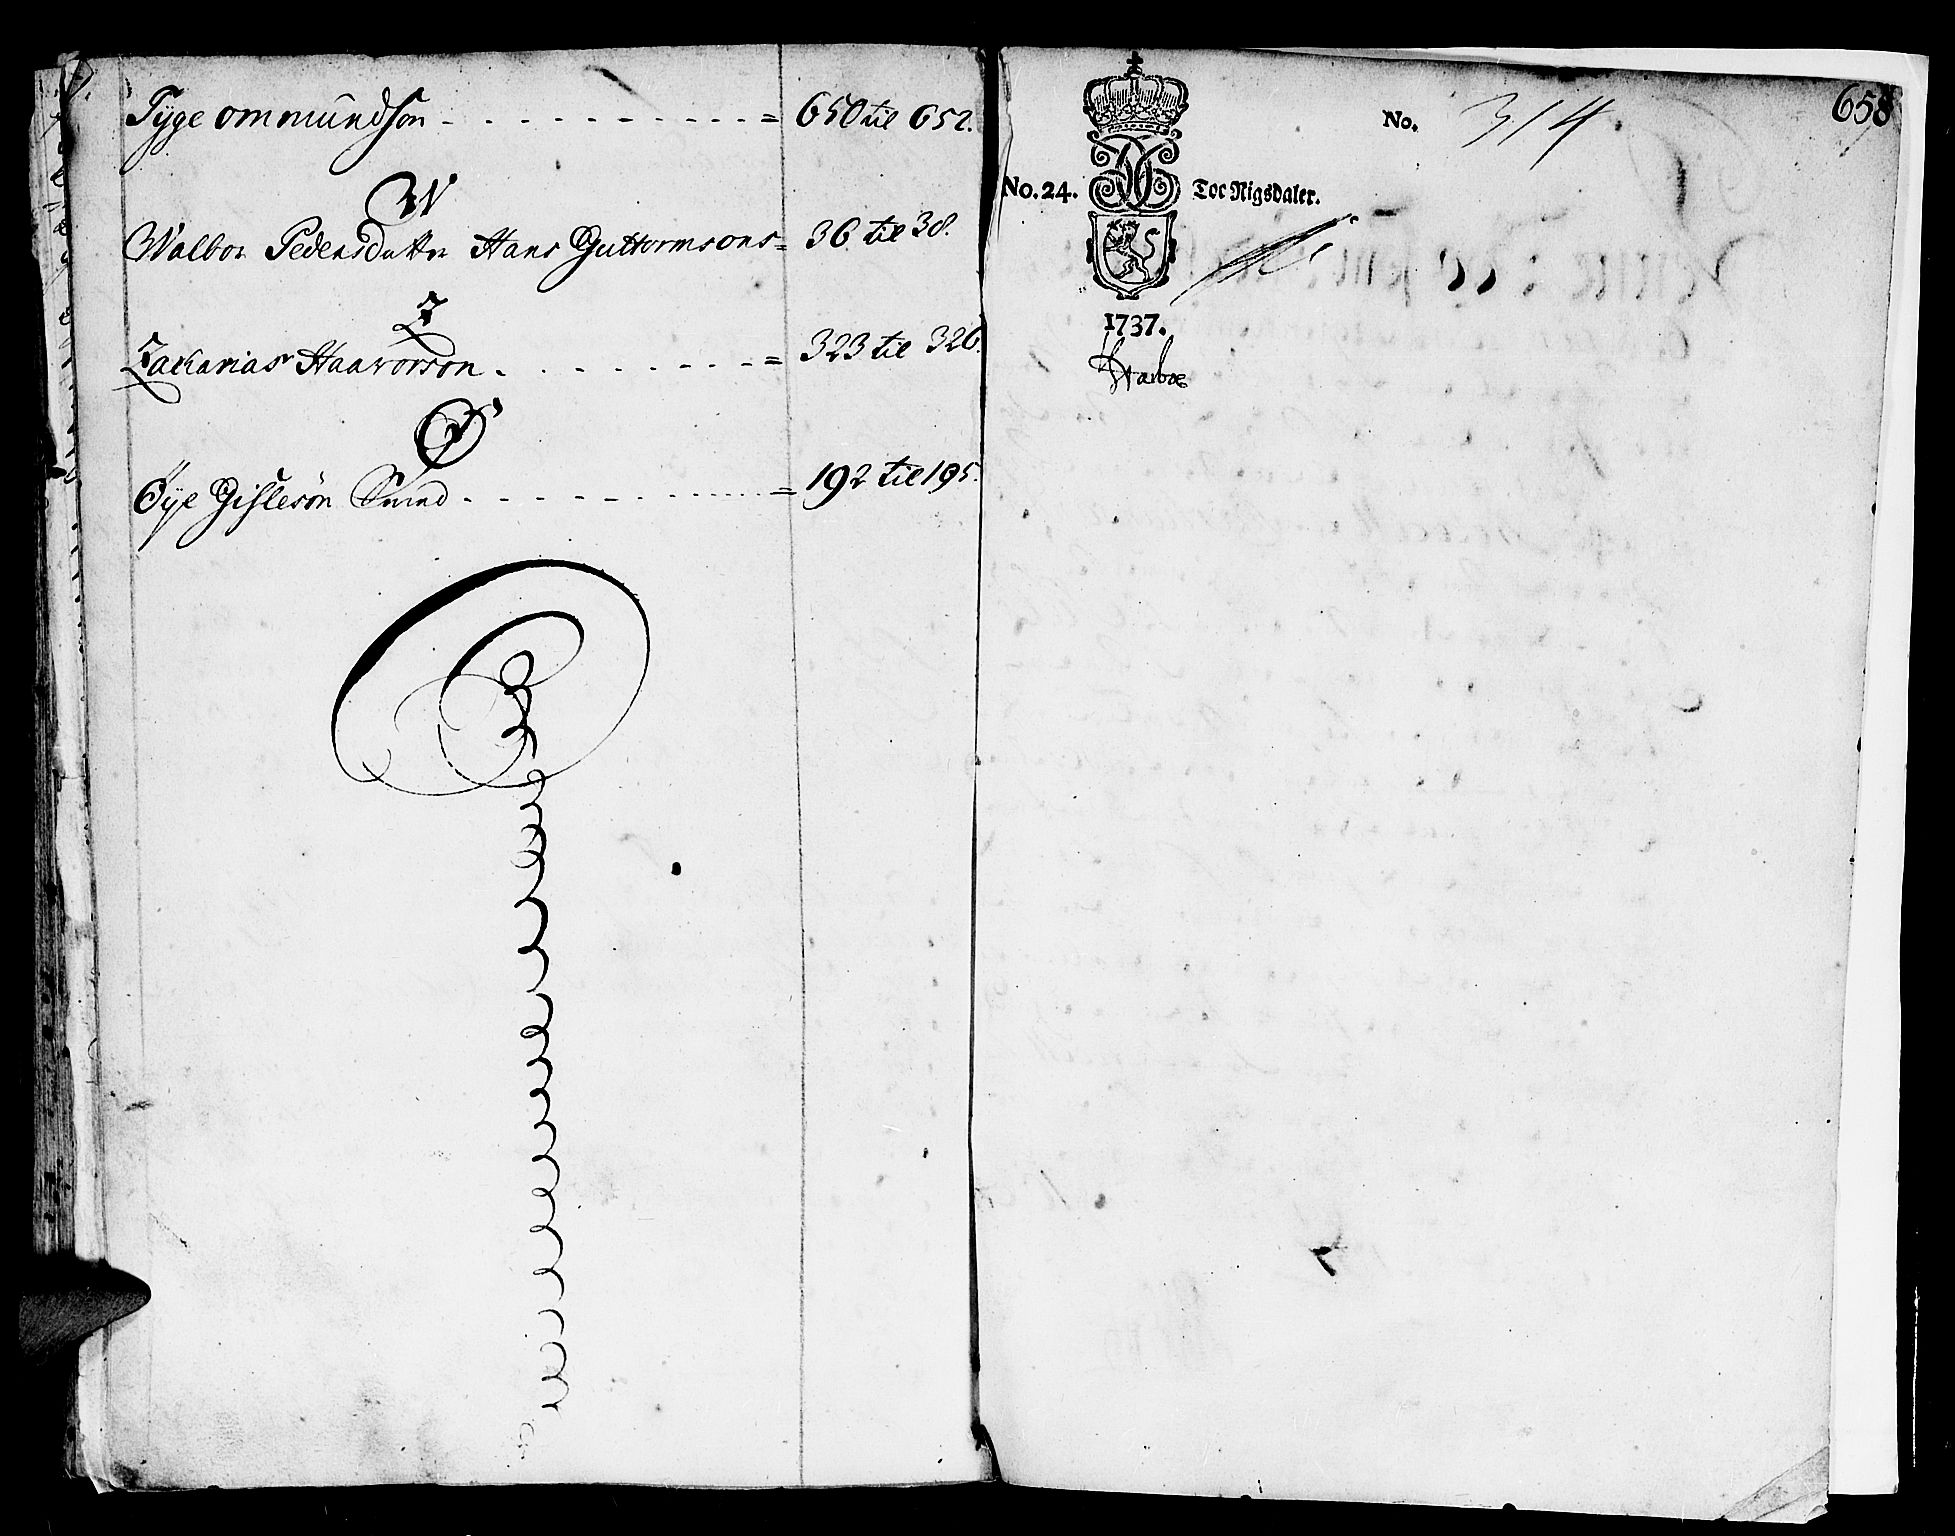 Tÿge ommundsøn - - - - - - - - - - - = 650 til 652.
W
Walbor Pedersdatter Hans Guttormsøns = 36 til 38.
Z
Zacharias Haavorsøn - - - - - - - = 323 til 326.
Ø
Øÿe Gislesøn Smed - - - - - - - - = 192 til 195.
658
No. 314
No. 24. Toe Rigsdaler.
1737.